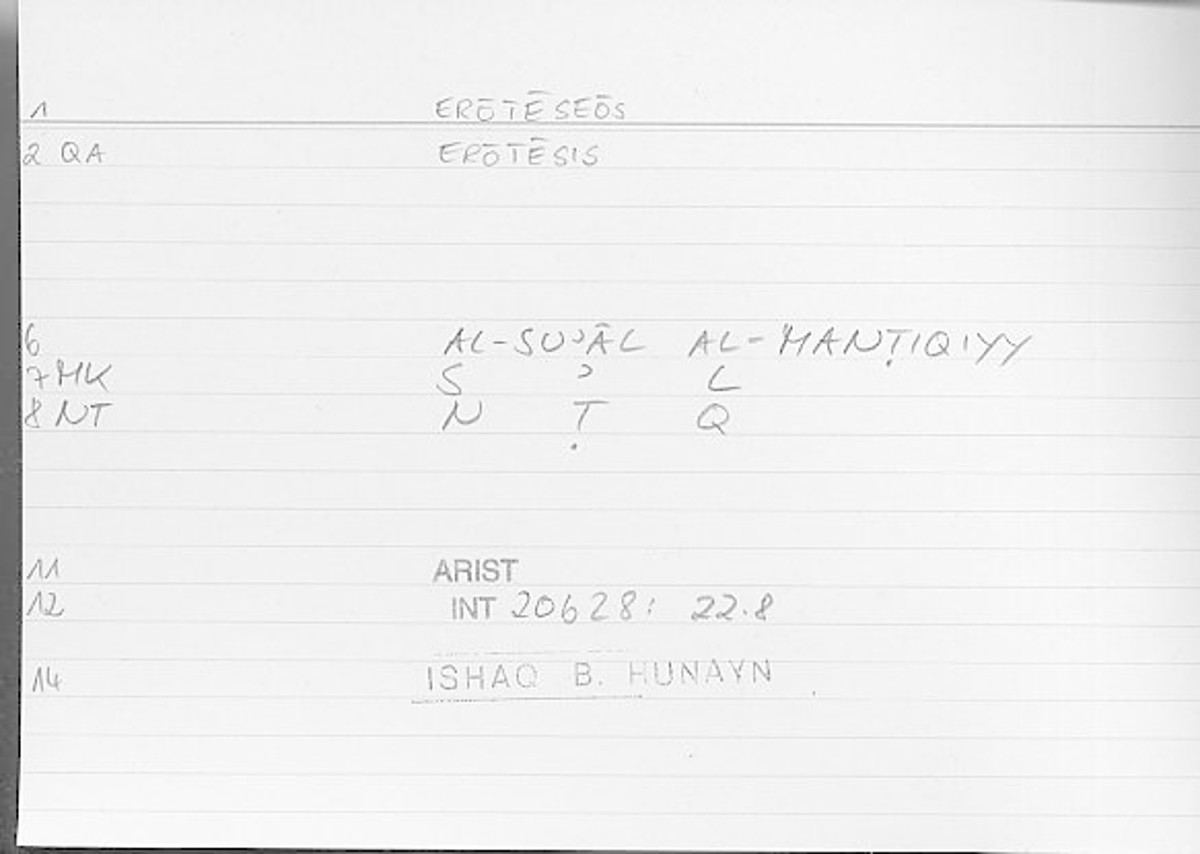 1 ERŌTĒSEŌS
2 QA ERŌTĒSIS
6 AL-SUʾĀL AL-MANṬIQIYY
7 MK S ʾ L
8 NT N Ṭ Q
11 ARIST
12 INT 20b28: 22.8
14 ISHAQ B. HUNAYN